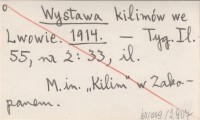 Wystawa kilimów we
Lwowie. 1914. — Tyg. Il.
55, na 2: 33, il.
M. in. „Kilim" w Zako-
panem.